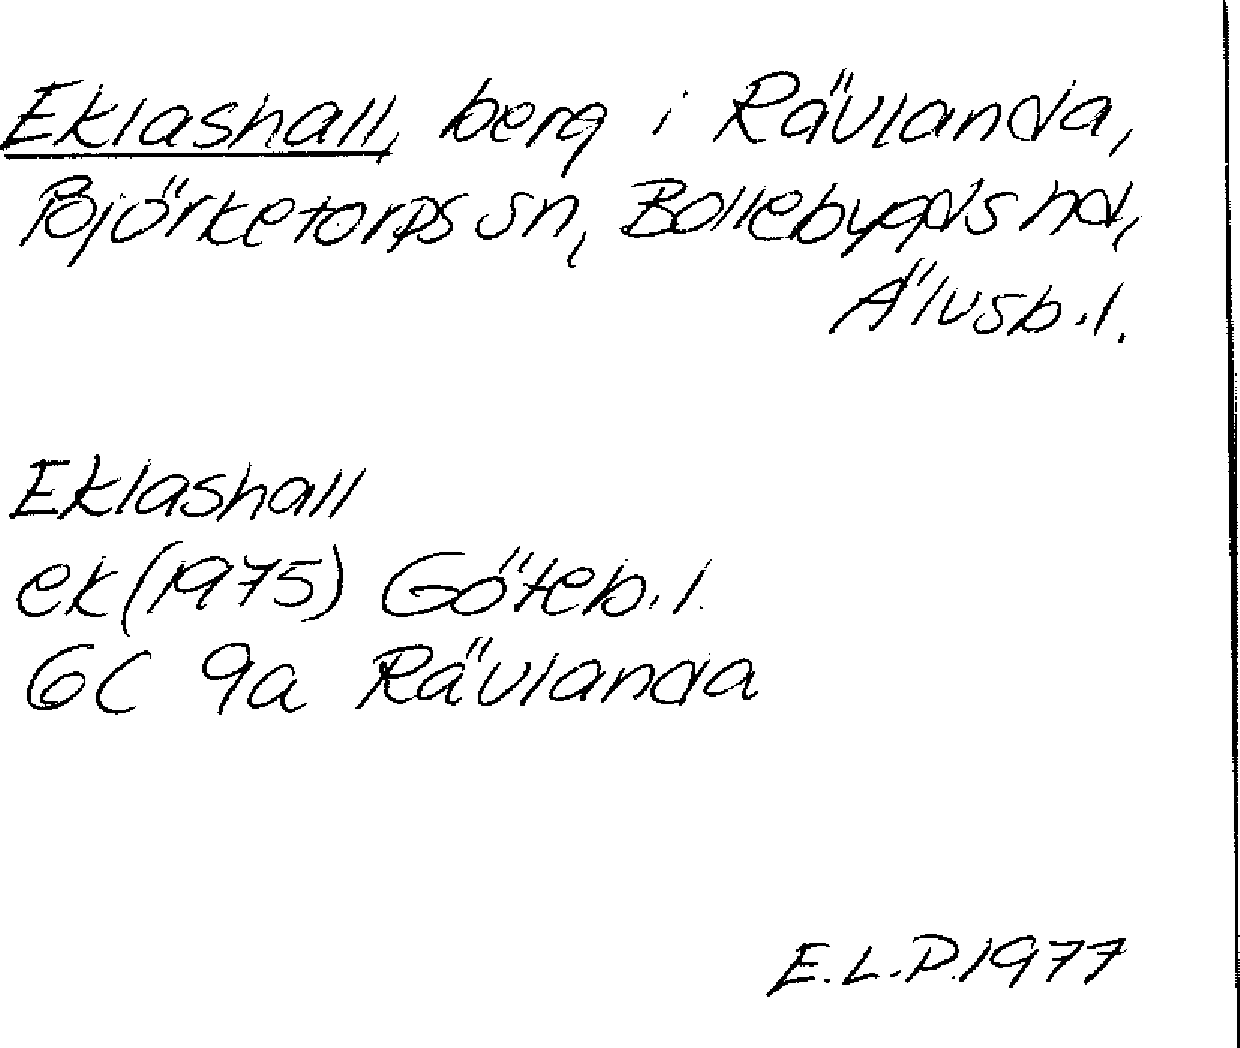 Eklashall, berg i Rävlanda,
Björketorps sn, Bollebygds hd,
Älvsb.l.
Eklashall
ek (1975) Göteb.l.
6C 9a Rävlanda
E.L.P. 1977